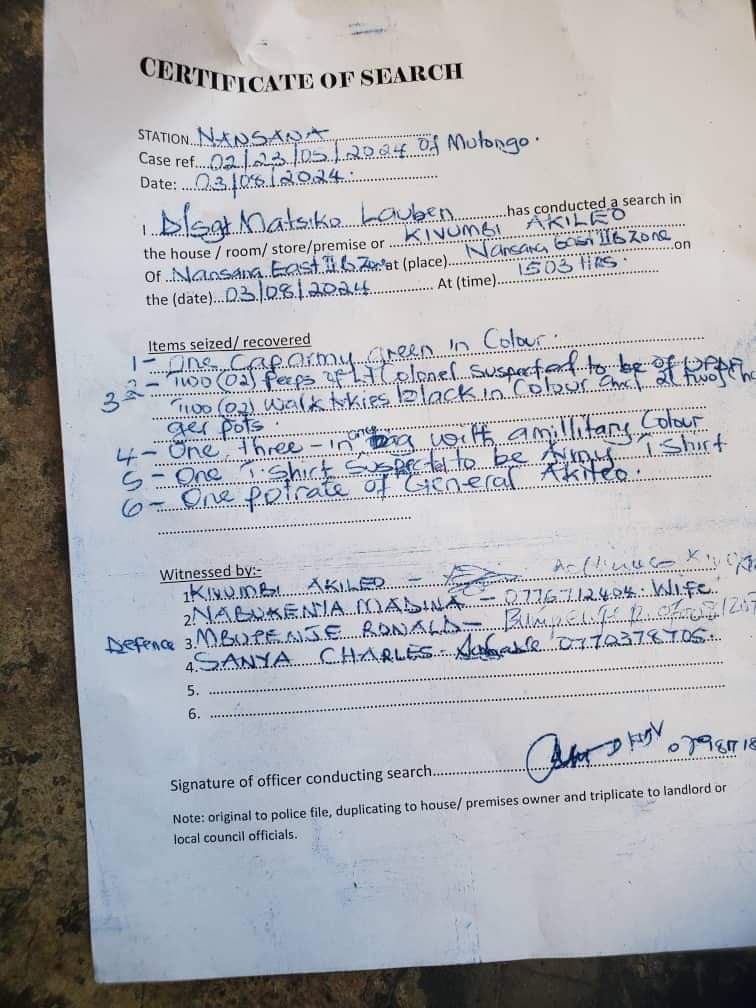 CERTIFICATE OF SEARCH
STATION..NANSANA
Case ref....02/23/05/2024 of Mutongo.
Date: ...03/08/2024.
I..D/sgt Matsiko Lauben..........has conducted a search in
the house / room/ store/premise or ...KIVUMBI AKILEO
Of ..Nansana East II B Zone at (place)..Nansana East II B Zone...on
the (date)...03/08/2024............... At (time)....1503 Hrs.
Items seized/ recovered
1- One cap army green in Colour.
2- Two (02) peeps of Lt Colonel suspected to be of UPDF
3 Two (02) walk tkies black in Colour and
ger pots.
4- One three-in one bag with amillitary Colour
5- One T.Shirt Suspected to be Army T Shirt
6- One potrate of General Akileo.
Witnessed by:-
1.KIVUMBI AKILEO -
2.NABUKENIA MADINA - 0776712404. Wife
Defence 3.MBUPENJE RONALD-
4.SANYA CHARLES- 0770378705.
5. ....................
6. ....................
Signature of officer conducting search.......................
Note: original to police file, duplicating to house/ premises owner and triplicate to landlord or
local council officials.